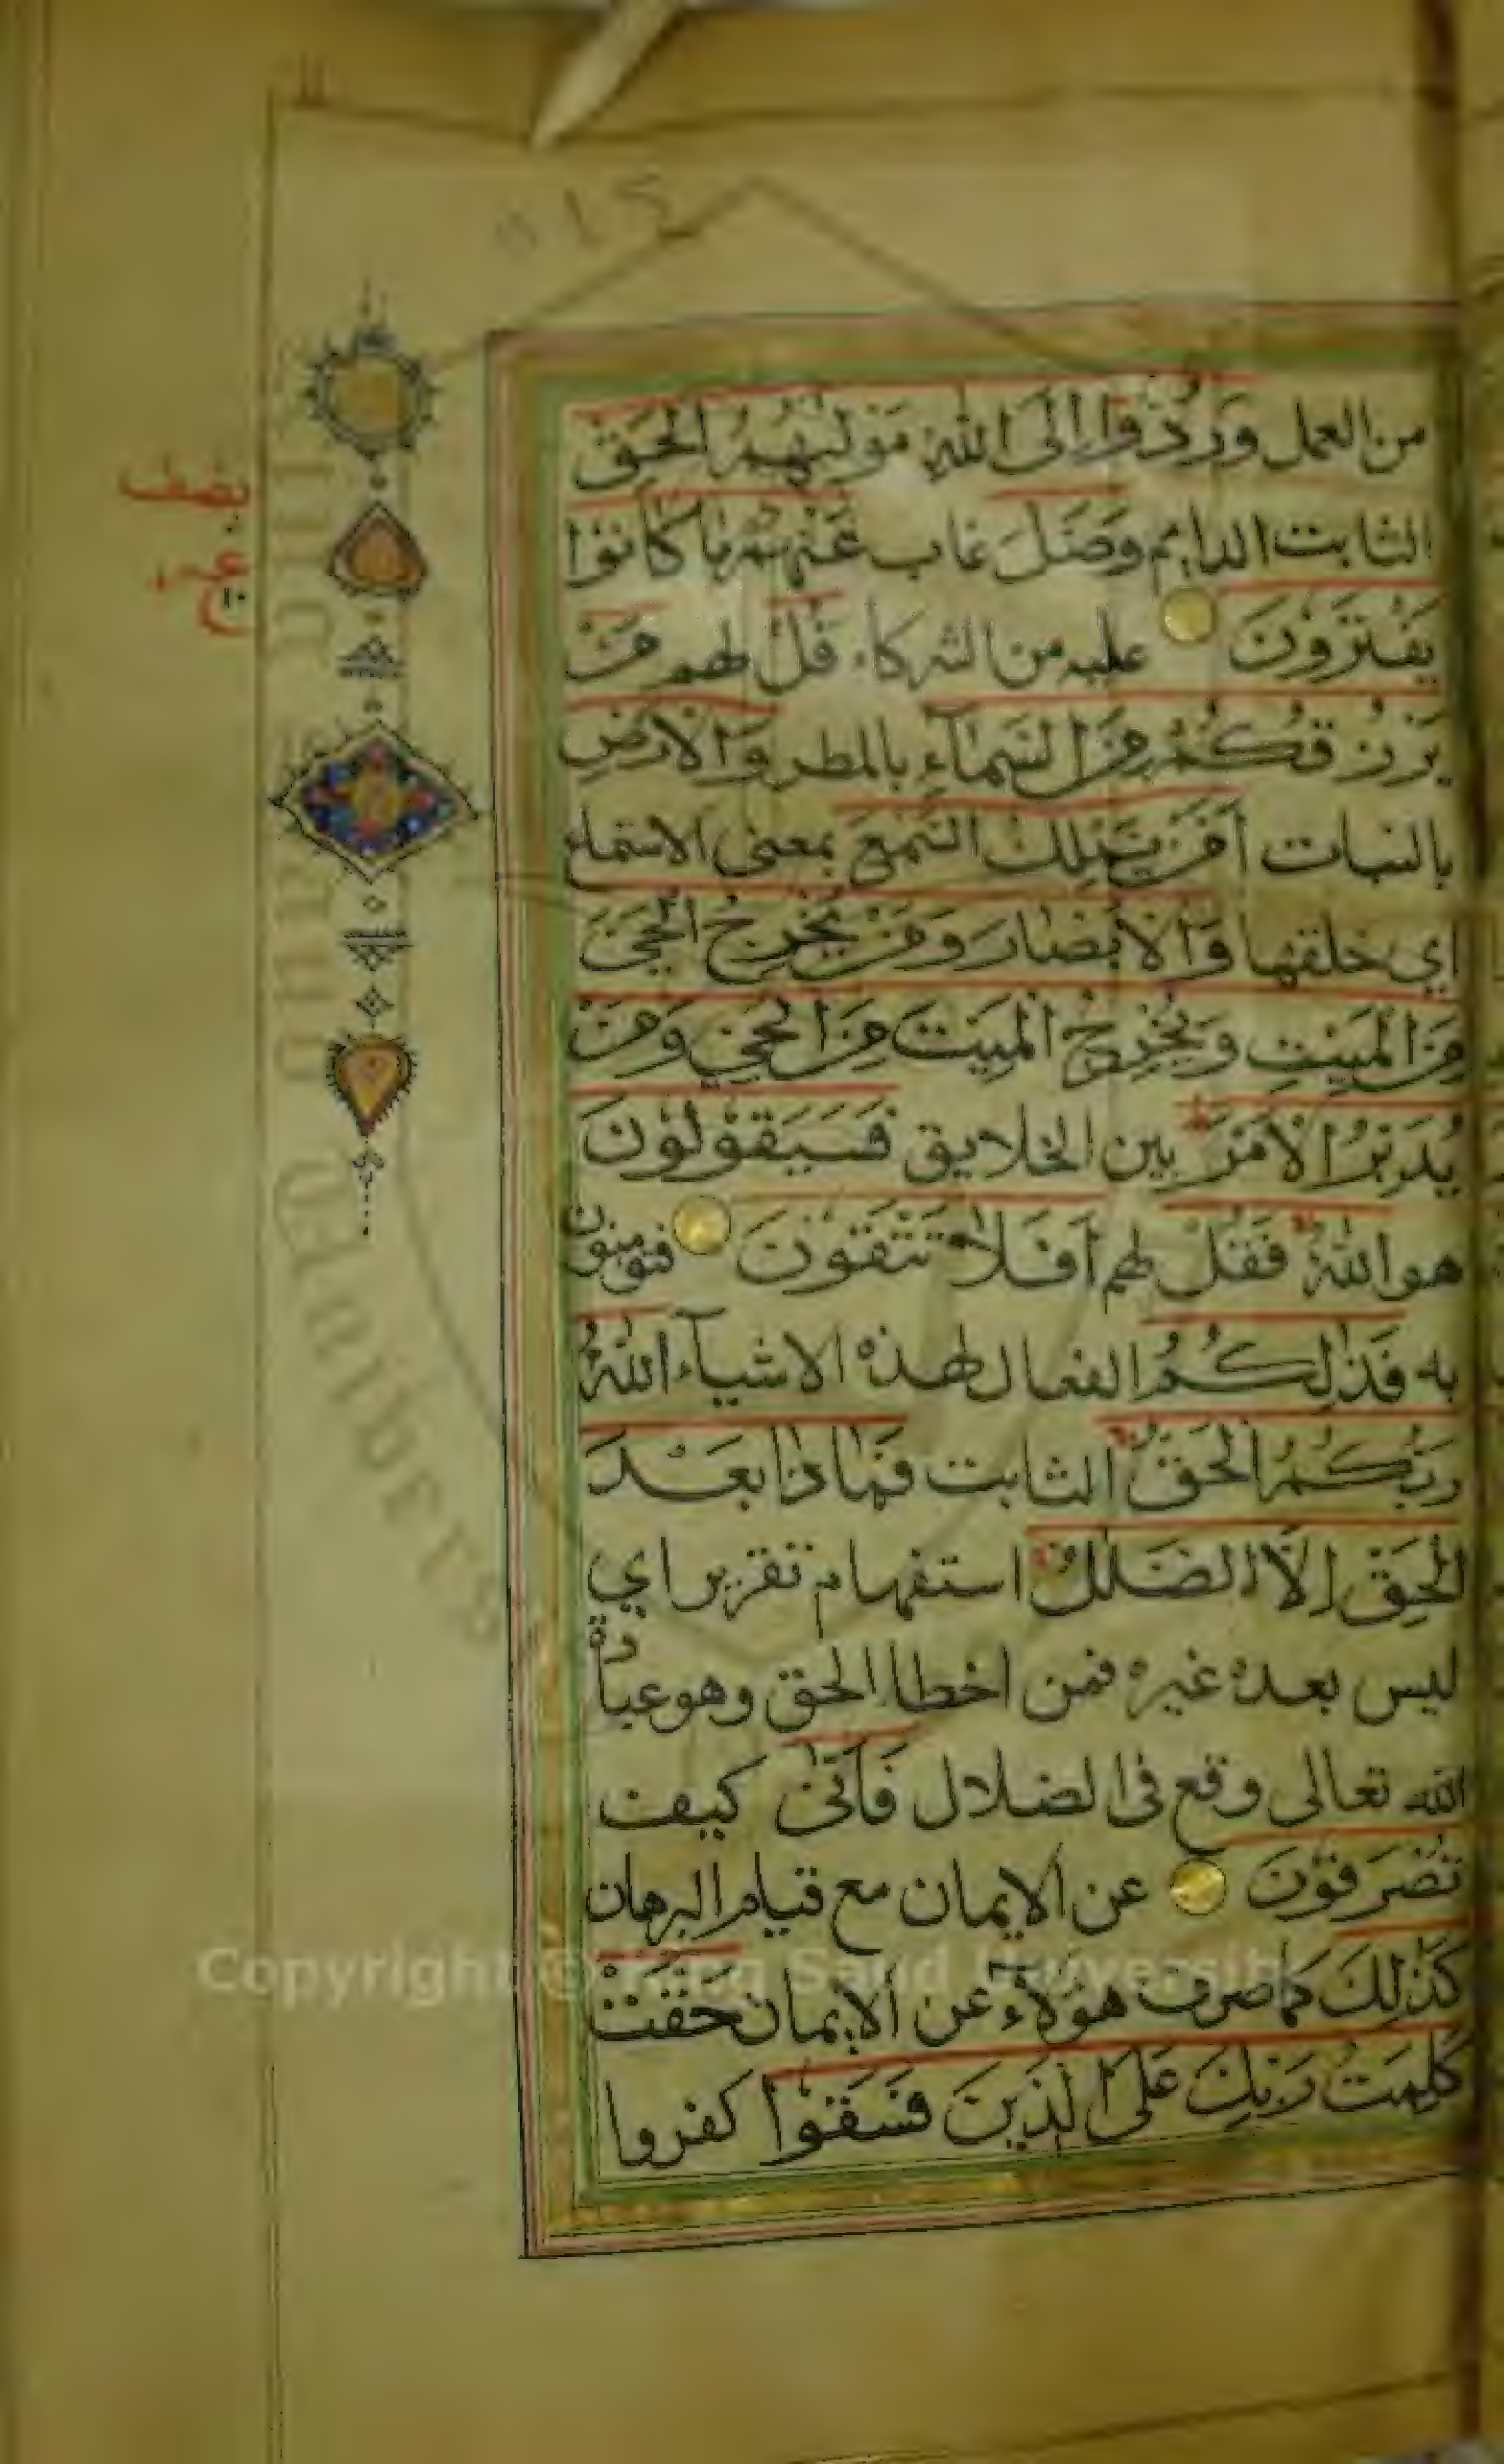 من العمل وَرُدُّوا إِلَى اللهِ مَوْلٰىهُمُ الْحَقِّ
الثابت الدايم وَضَلَّ غاب عَنْهُمْ مَا كَانُوا
يَفْتَرُونَ عليه من الشركاء قُلْ لهم مَنْ
يَرْزُقُكُمْ مِنَ السَّمَاءِ بالمطر وَالْأَرْضِ
بالنبات أَمَّنْ يَمْلِكُ السَّمْعَ بمعنى الاسماع
اي خلقها وَالْأَبْصَارَ وَمَنْ يُخْرِجُ الْحَيَّ
مِنَ الْمَيِّتِ وَيُخْرِجُ الْمَيِّتَ مِنَ الْحَيِّ وَمَنْ
يُدَبِّرُ الْأَمْرَ بين الخلايق فَسَيَقُولُونَ
هو اللهُ فَقُلْ لهم أَفَلَا تَتَّقُونَ فتومنون
به فَذٰلِكُمُ الفعال لهذه الاشياء اللهُ
رَبُّكُمُ الْحَقُّ الثابت فَمَاذَا بَعْدَ
الْحَقِّ إِلَّا الضَّلٰلُ استفهام تقرير اي
ليس بعده غيره فمن اخطا الحق وهو عبادة
الله تعالى وقع فى الضلال فَأَنّٰى كيف
تُصْرَفُونَ عن الايمان مع قيام البرهان
كَذٰلِكَ كما صرف هؤلاء عن الايمان حَقَّتْ
كَلِمَتُ رَبِّكَ عَلَى الَّذِينَ فَسَقُوا كفروا
نصف
Copyright © King Saud University